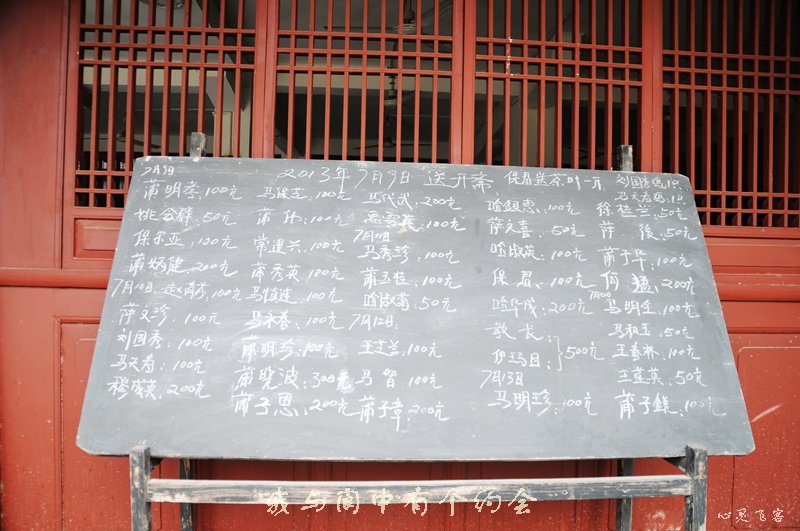 2013年7月9日 送开斋
7月9日
蒲明孝:100元
姚金群:50元
保尔亚:100元
蒲炳建:200元
7月10日
萨文珍:100元
刘国秀:100元
马天寿:100元
穆成英:200元
马俊芝:100元
常建兴:100元
蒲秀英:100元
马俊连:100元
马永春:100元
蒲明珍:100元
蒲晓波:300元
蒲子恩:200元
马成武:200元
7月11日
马秀珍:100元
蒲玉桂:100元
哈淑菊:50元
7月12日:
王芝兰:100元
马智:100元
蒲子章:200元
保君送茶叶一斤
哈超忠:100元
萨文喜:50元
哈淑英:100元
保盈:100元
哈华成:200元
教长:
伊玛目:500元
7月13日
马明珍:100元
刘国秀鸡1只
马天寿鸡1只
徐桂兰:50元
萨俊:50元
蒲子华:100元
何猛:200元
马明全:100元
马祖玉:50元
王春林:100元
王莲英:50元
蒲子銑:100元
我与阆中有个约会
心灵飞客